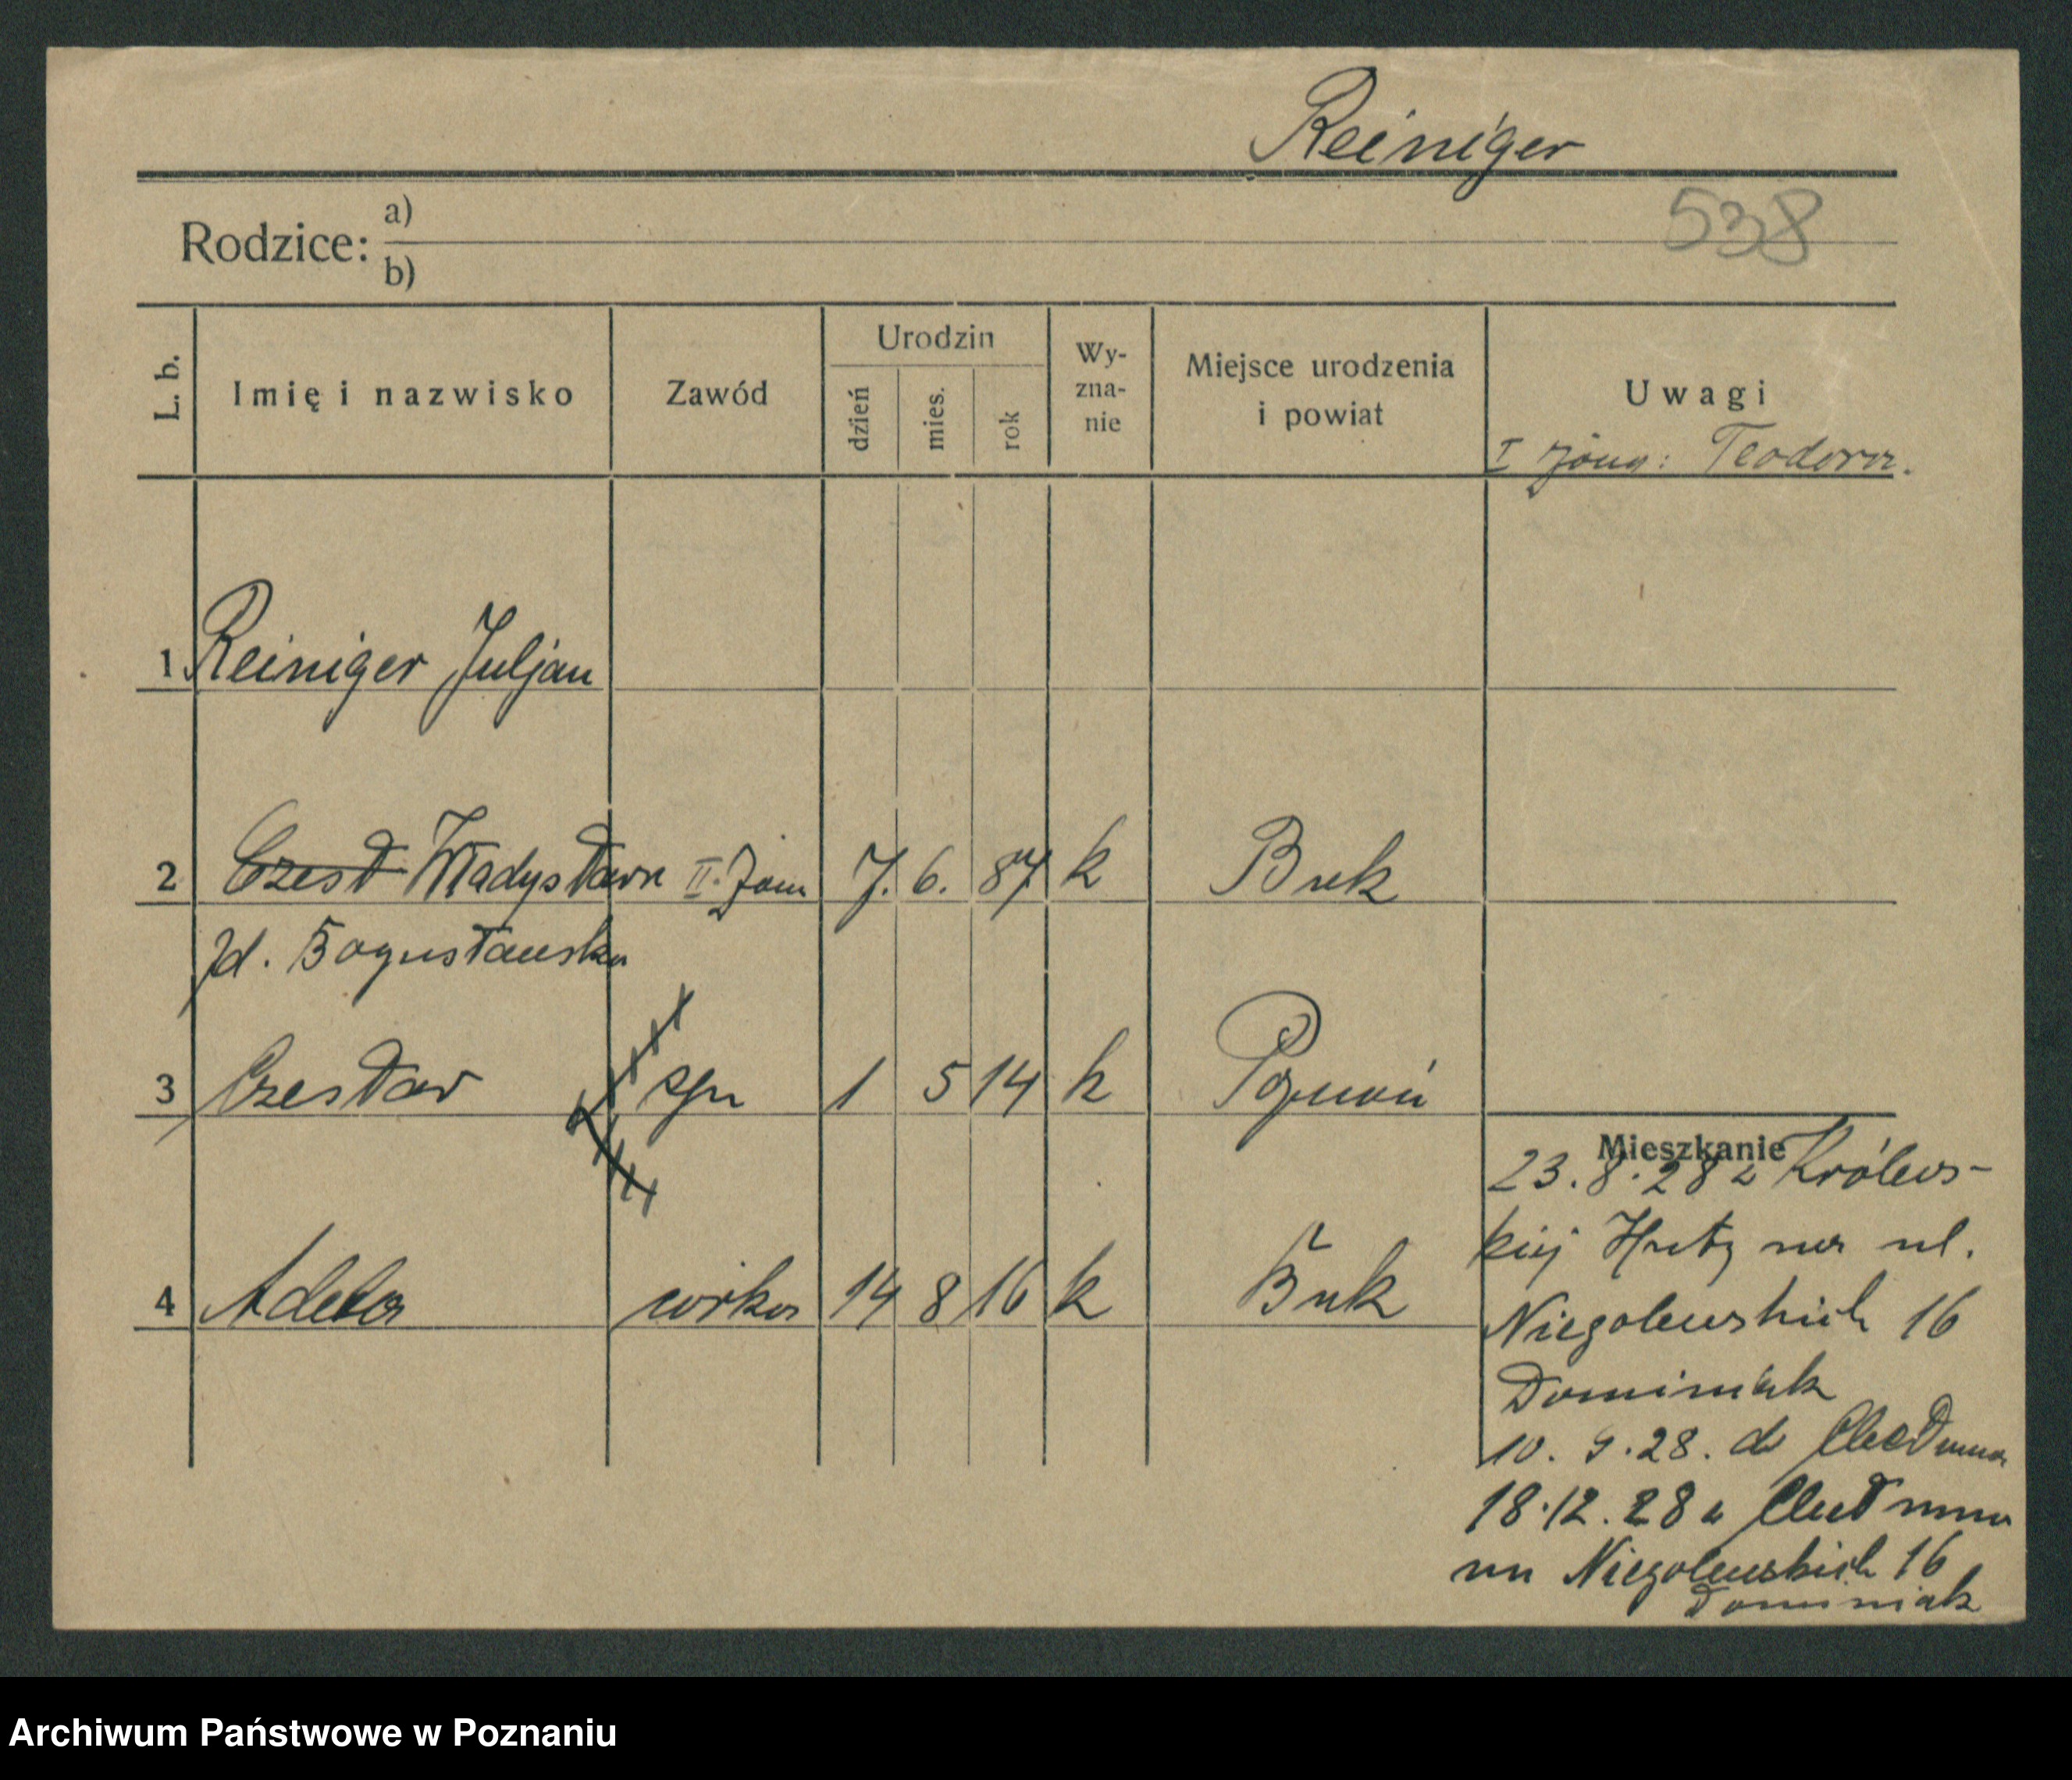 Reiniger
538
Rodzice: a)
b)
L. b. Imię i nazwisko Zawód Urodzin dzień mies. rok Wyznanie Miejsce urodzenia i powiat Uwagi
I żona: Teodora.
1 Reiniger Juljan
2 Czesł Władysława II. żona 7. 6. 87 k Buk
zd. Bogusławska
3 Czesław syn 1 5 14 k Poznań
Mieszkanie
4 Adela córka 14 8 16 k Buk
23.8.28 z Królews-
kiej Huty na ul.
Niegolewskich 16
Dominiak
10. 9.28. do Chełmna
18.12.28 z Chełmna
na Niegolewskich 16
Dominiak
Archiwum Państwowe w Poznaniu